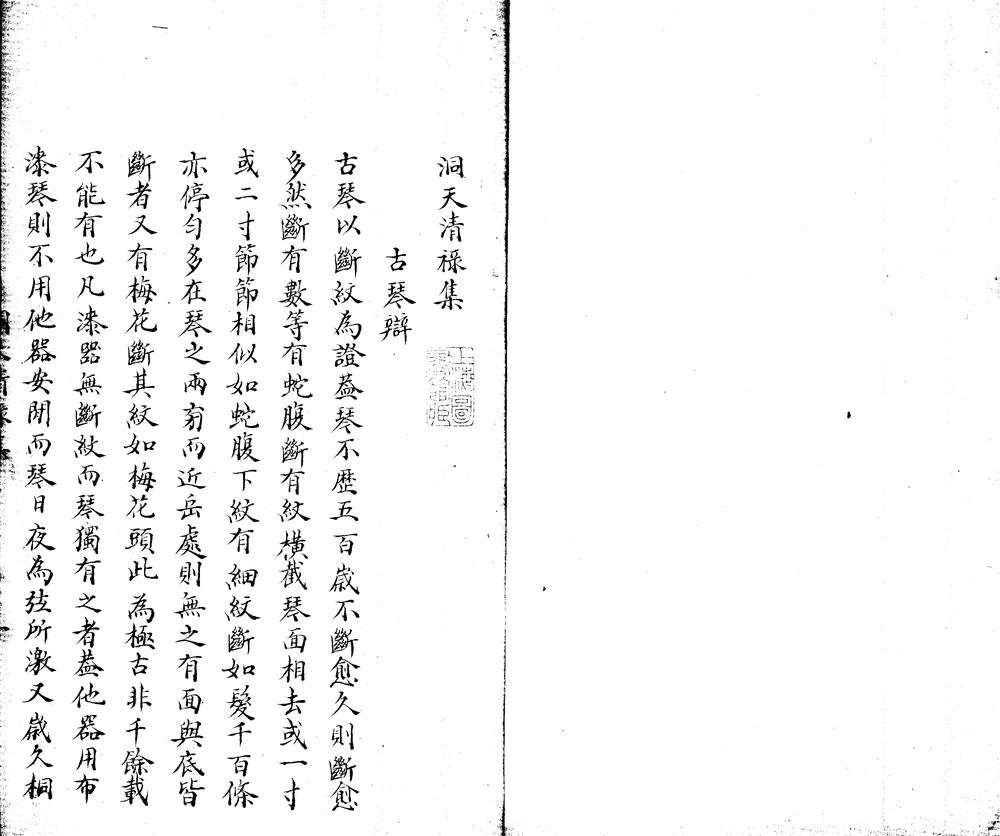 洞天清祿集
古琴辯
古琴以斷紋為證葢琴不歷五百歲不斷愈久則斷愈
多然斷有數等有蛇腹斷有紋橫截琴面相去或一寸
或二寸節節相似如蛇腹下紋有細紋斷如髮千百條
亦停勻多在琴之兩旁而近岳處則無之有面與底皆
斷者又有梅花斷其紋如梅花頭此為極古非千餘載
不能有也凡漆器無斷紋而琴獨有之者葢他器用布
漆琴則不用他器安閒而琴日夜為弦所激又歲久桐